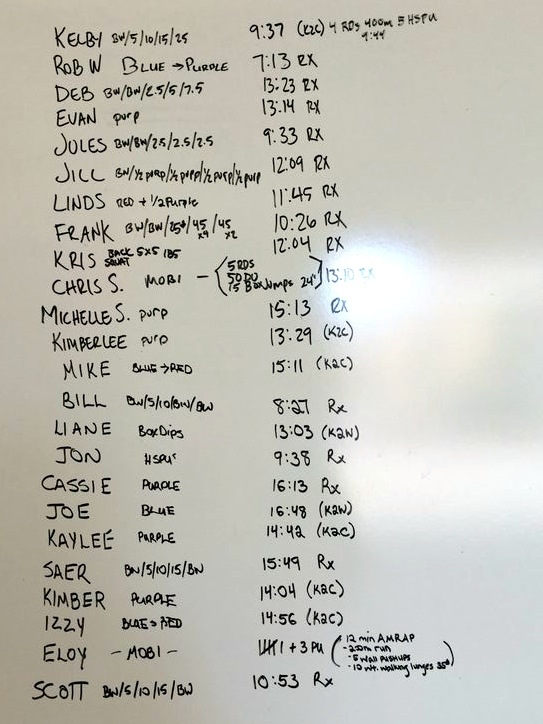 KELBY BW/5/10/15/25 9:37 (K2C) 4 RDS 400m 5 HSPU
9:44
ROB W BLUE → PURPLE 7:13 RX
DEB BW/BW/2.5/5/7.5 13:23 RX
EVAN purp 13:14 RX
JULES BW/BW/2.5/2.5/2.5 9:33 RX
JILL BW/½ purp/½ purp/½ purp/½ purp 12:09 RX
LINDS RED + ½ Purple 11:45 RX
FRANK BW/BW/25#/45/45 10:26 RX
x4 x2
KRIS BACK SQUAT 5x5 185 12:04 RX
CHRIS S. MOBI - 5 RDS 13:10 RX
50 DU
15 Box Jumps 24"
MICHELLE S. purp 15:13 RX
KIMBERLEE purp 13:29 (K2C)
MIKE BLUE → RED 15:11 (K2C)
BILL BW/5/10/BW/BW 8:27 Rx
LIANE Box Dips 13:03 (K2W)
JON HSPU's 9:38 Rx
CASSIE PURPLE 16:13 Rx
JOE BLUE 16:48 (K2W)
KAYLEE PURPLE 14:42 (K2C)
SAER BW/5/10/15/BW 15:49 Rx
KIMBER PURPLE 14:04 (K2C)
IZZY BLUE → RED 14:56 (K2C)
ELOY - MOBI - 1 + 3 PU (12 min AMRAP
-200m run
-5 Wall PUSHUPS
-10 wt. walking lunges 35#)
SCOTT BW/5/10/15/BW 10:53 Rx